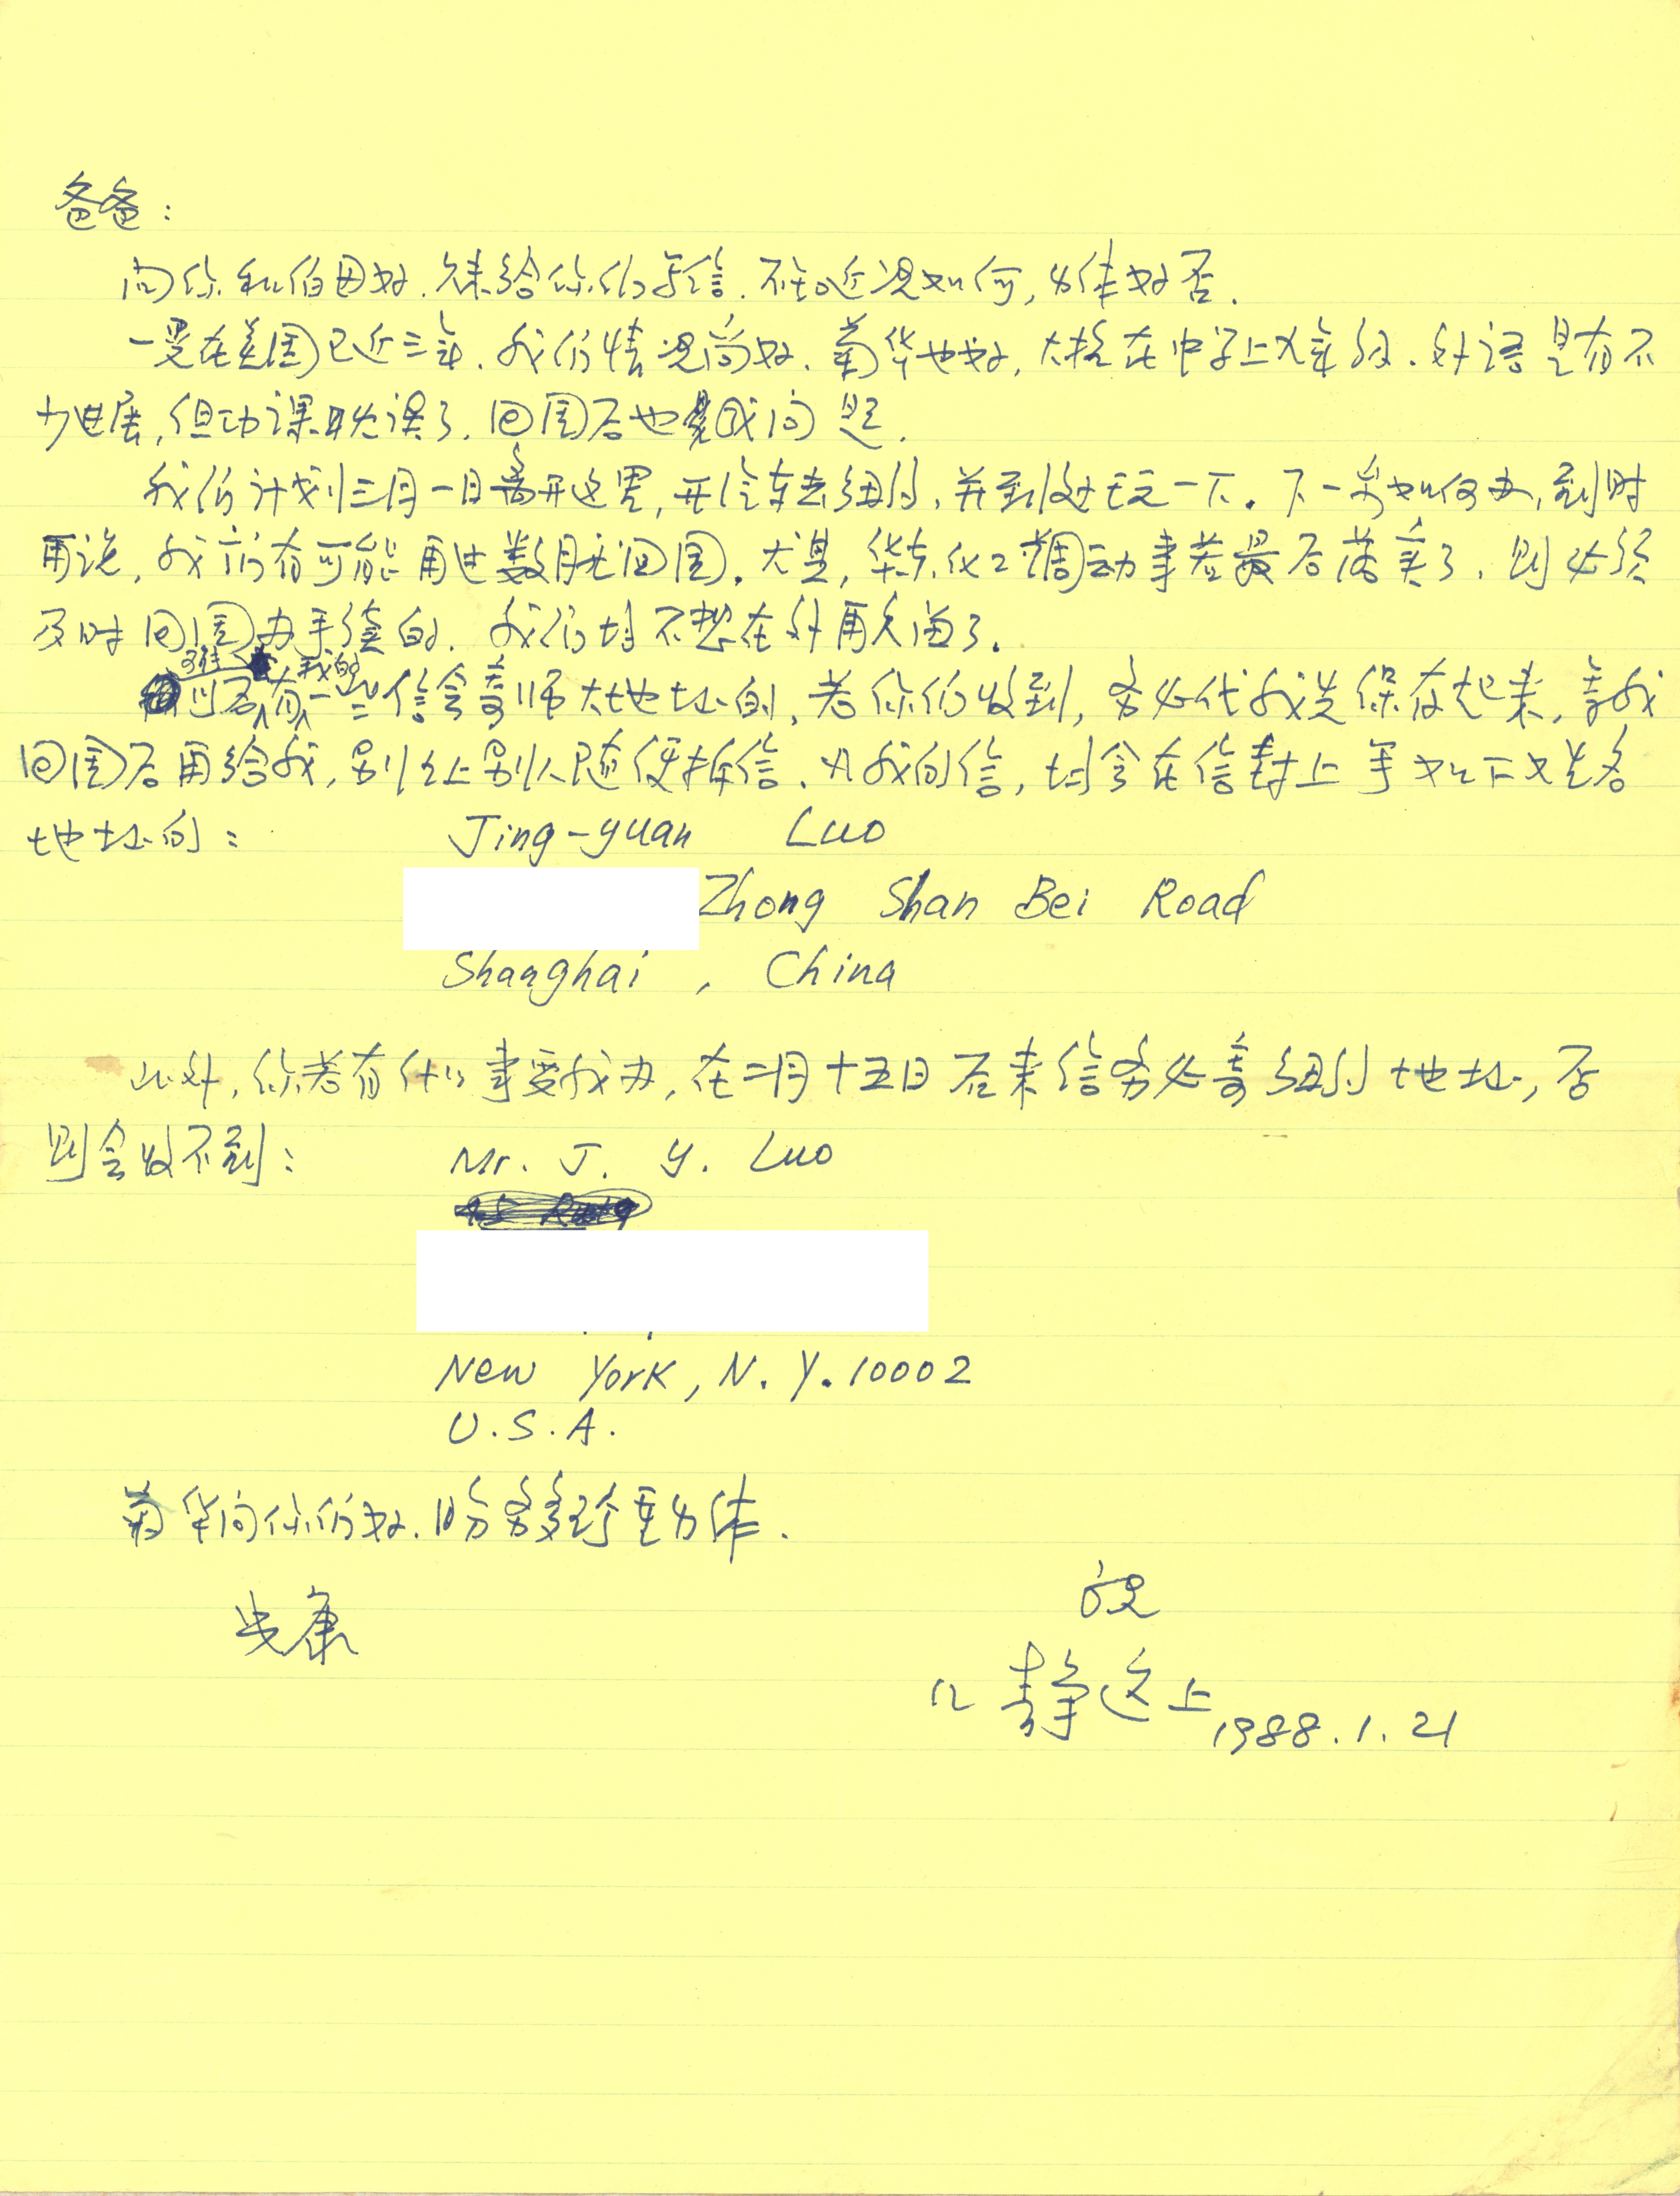 爸爸：
向你和伯母好．久未给你们写信．不知近况如何，身体好否．
一晃在美国已近三年．我们情况尚好．菊华也好，大栋在中学上九年级．外语是有不
少进展，但功课耽误了．回国后也是成问题．
我们计划三月一日离开这里，开汽车去纽约，并到处玩一下．下一步如何办，到时
再说．我们有可能再过数月就回国．尤其，华东化工调动事若最后落实了，则必须
及时回国办手续的．我们均不想在外再久留了．
以后可能有我的一些信会寄师大地址的，若你们收到，务必代我先保存起来，等我
回国后再给我，别让上别人随便拆信．凡我的信，均会在信封上写如下姓名
地址的：
Jing-yuan Luo
Zhong Shan Bei Road
Shanghai , China
此外，你若有什么事要我办，在二月十五日后来信务必寄纽约地址，否
则会收不到：
Mr. J. Y. Luo
New York, N. Y. 10002
U. S. A.
菊华向你们好．盼务多珍重身体．
安康
祝
儿 静远上
1988. 1. 21